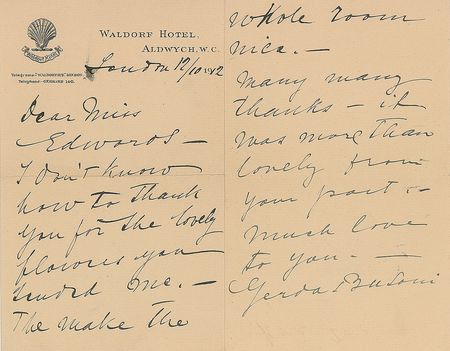 WALDORF HOTEL,
ALDWYCH, W.C.
London 12/10 1912
Dear Miss
Edwards —
I don't know
how to thank
you for the lovely
flowers you
sended me. —
The make the
whole room
nice. —
Many many
thanks — it
was more than
lovely from
your part. —
Much love
to you. —
Gerda Busoni